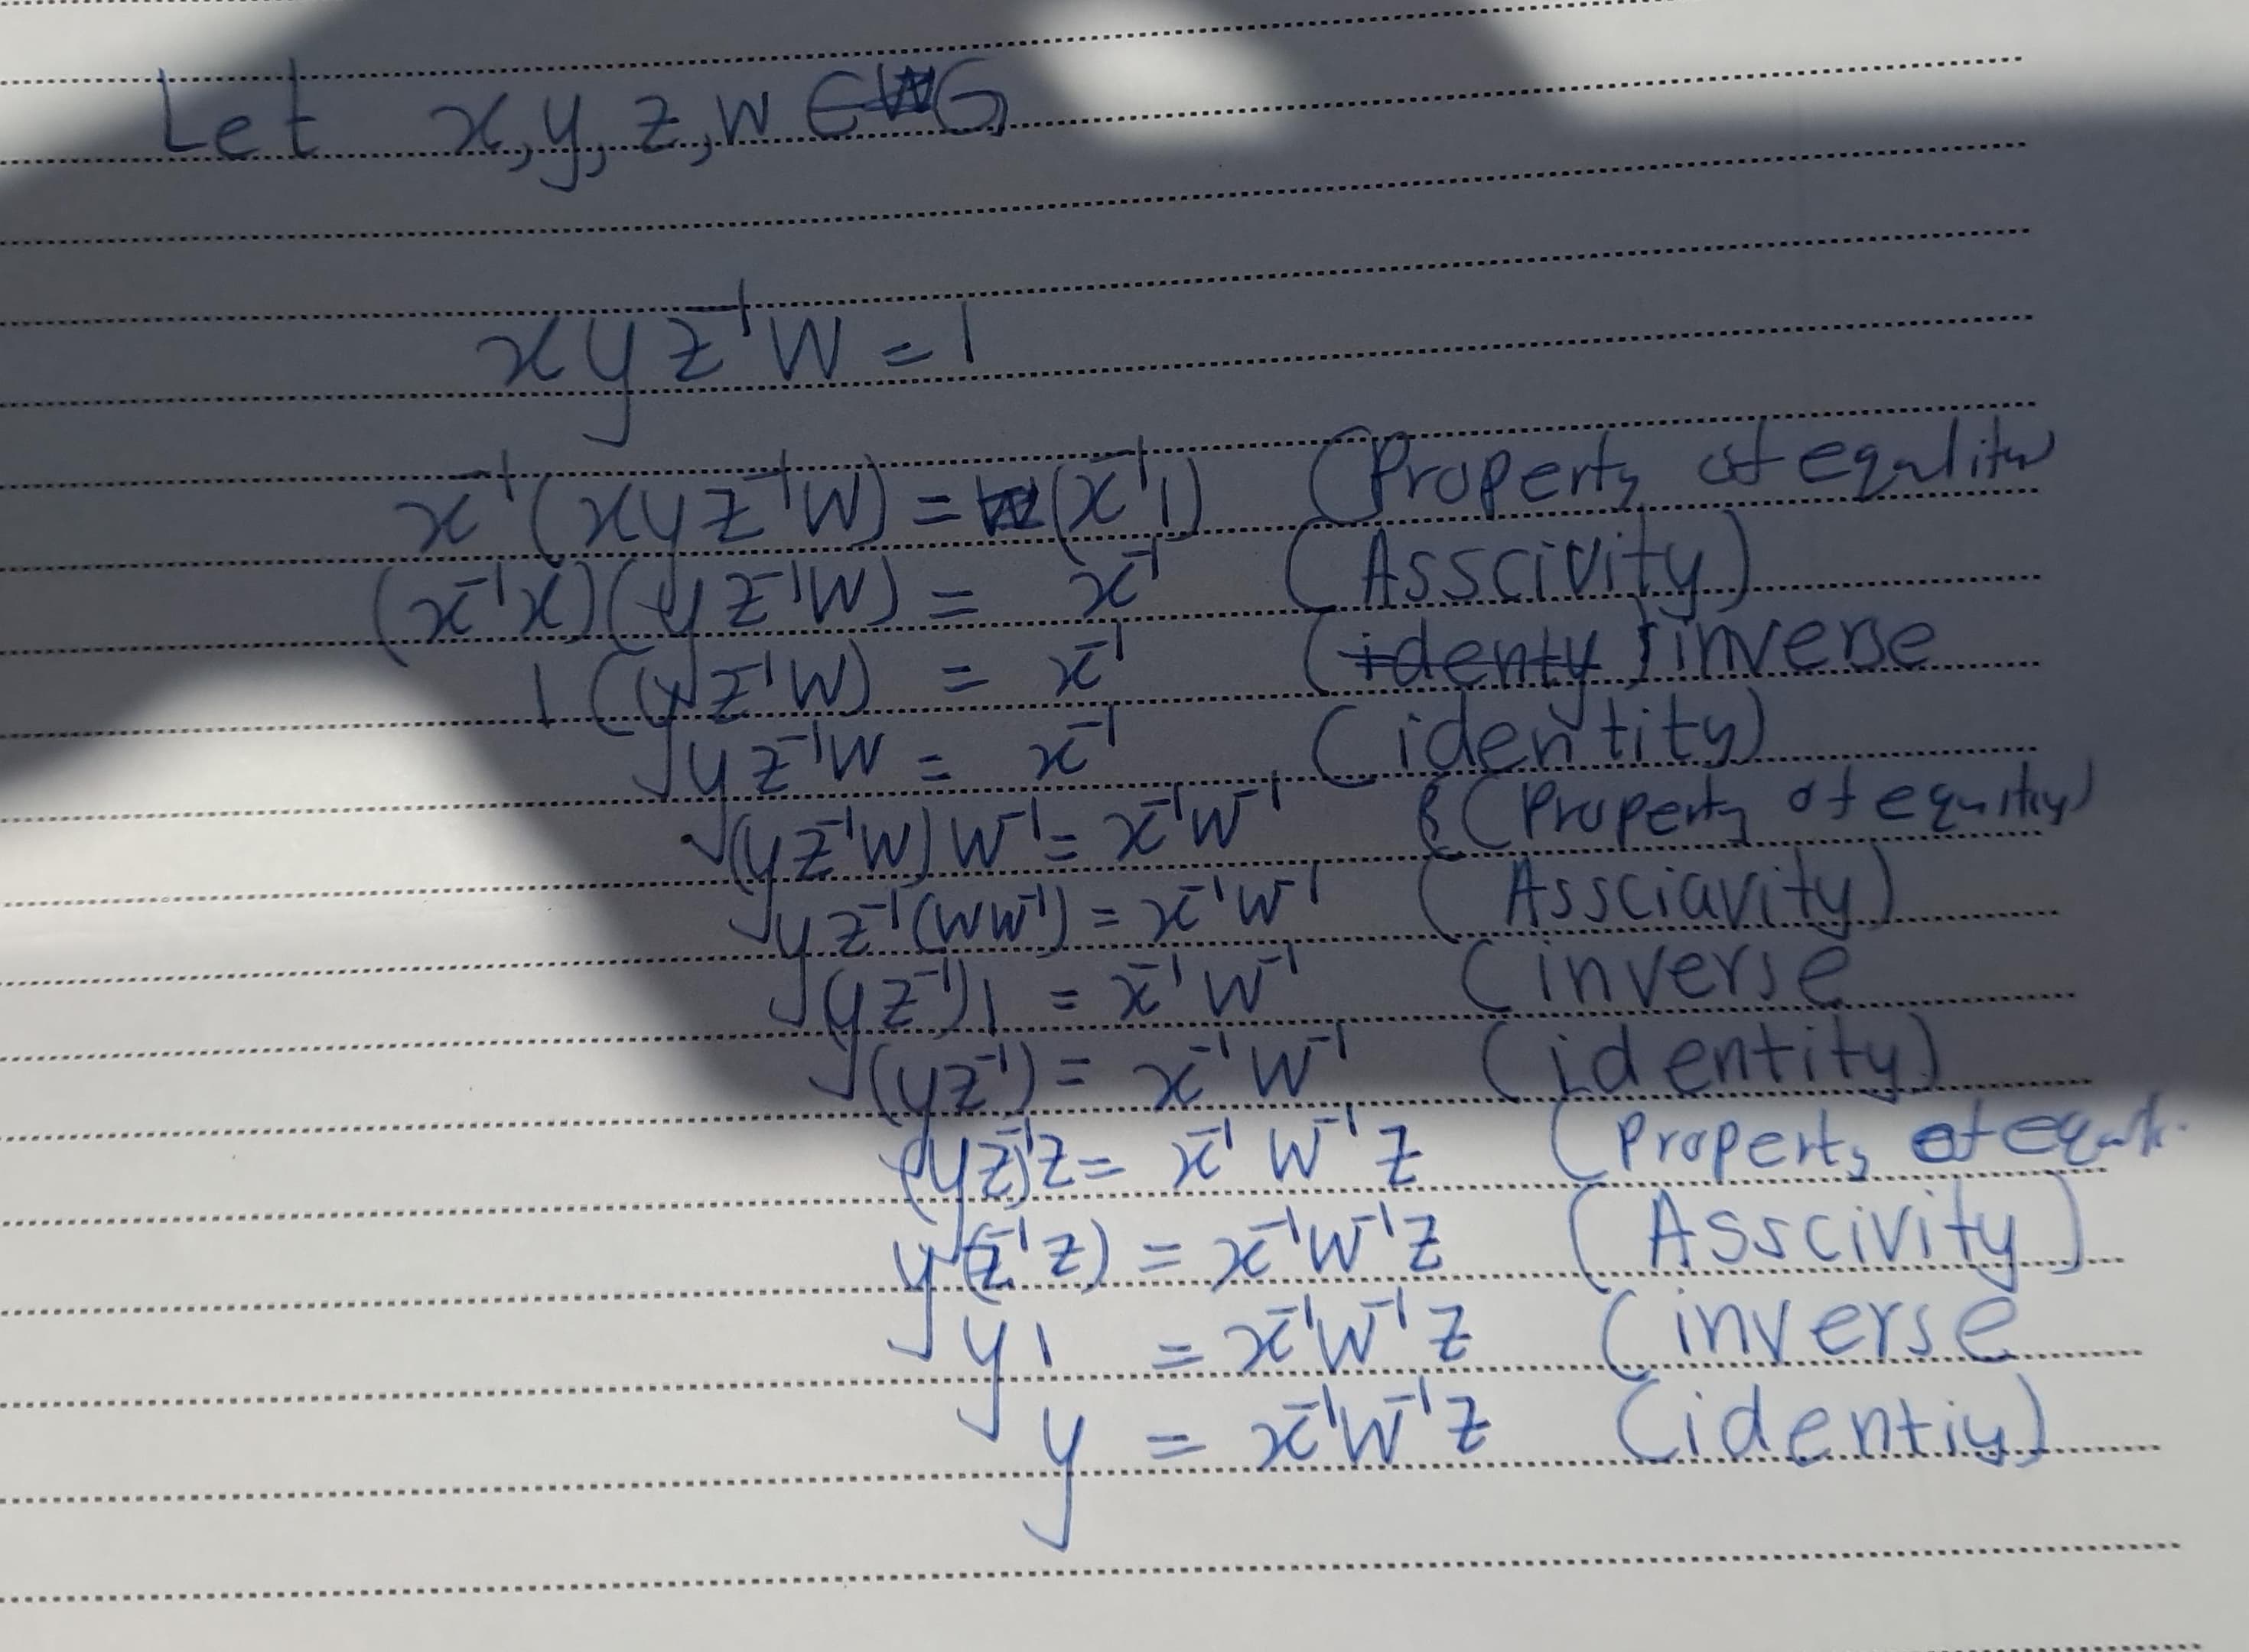 Let x, y, z, w ∈ G
x y z⁻¹ w = 1
x⁻¹(x y z⁻¹ w) = (x⁻¹ 1) (Property of equality
(x⁻¹x)(y z⁻¹ w) = x⁻¹ (Asscivity)
1 (y z⁻¹ w) = x⁻¹ (identy) inverse
y z⁻¹ w = x⁻¹ (identity)
(y z⁻¹ w) w⁻¹ = x⁻¹ w⁻¹ (Property of equity)
y z⁻¹ (w w⁻¹) = x⁻¹ w⁻¹ (Assciavity)
(y z⁻¹) 1 = x⁻¹ w⁻¹ (inverse
(y z⁻¹) = x⁻¹ w⁻¹ (identity)
(y z⁻¹) z = x⁻¹ w⁻¹ z (Property of
y (z⁻¹ z) = x⁻¹ w⁻¹ z (Asscivity)
y 1 = x⁻¹ w⁻¹ z (inverse
y = x⁻¹ w⁻¹ z (identiy)